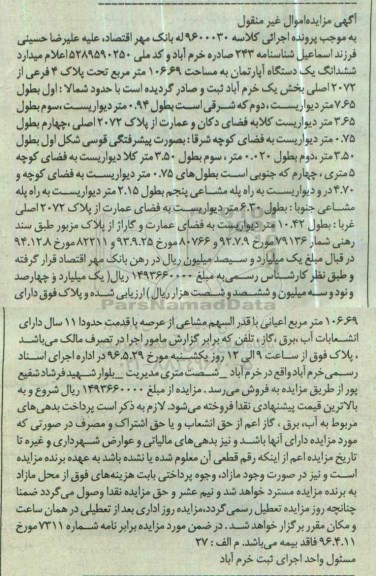 آگهی مزایده اموال غیر منقول
به موجب پرونده اجرائی کلاسه ۹۶۰۰۰۳۰ له بانک مهر اقتصاد، علیه علیرضا حسینی
فرزند اسماعیل شناسنامه ۲۴۳ صادره خرم آباد و کد ملی ۵۲۸۹۵۹۰۲۵۰ اعلام میدارد
ششدانگ یک دستگاه آپارتمان به مساحت ۱۰۶.۶۹ متر مربع تحت پلاک ۴ فرعی از
۲۰۷۲ اصلی بخش یک خرم آباد ثبت و صادر گردیده است با حدود شمالا : اول بطول
۷.۶۵ متر دیواریست ، دوم که شرقی است بطول ۰.۹۴ متر دیواریست ،سوم بطول
۳.۶۵ متر دیواریست کلا به فضای دکان و عمارت از پلاک ۲۰۷۲ اصلی ،چهارم بطول
۰.۷۵ متر دیواریست به فضای کوچه شرقا : بصورت پیشرفتگی قوسی شکل اول بطول
۳.۵۰ متر ،دوم بطول ۰.۰۲۰ متر ، سوم بطول ۳.۵۰ متر کلا دیواریست به فضای کوچه
۵ متری ، چهارم که جنوبی است بطول‌های ۰.۷۵ متر دیواریست به فضای کوچه و
۴.۷۰ در و دیواریست به راه پله مشاعی پنجم بطول ۲.۱۵ متر دیواریست به راه پله
مشاعی جنوبا : بطول ۶.۳۰ متر دیواریست به فضای عمارت از پلاک ۲۰۷۲ اصلی
غربا : بطول ۱۰.۴۲ متر دیواریست به فضای عمارت و گاراژ از پلاک مزبور طبق سند
رهنی شمار ۷۹۱۳۶ مورخ ۹۲.۷.۹ و ۸۰۷۶۶ مورخ ۹۳.۹.۲۵ و ۸۲۲۱۱ مورخ ۹۴.۱۲.۸
در قبال مبلغ یک میلیارد و سیصد میلیون ریال در رهن بانک مهر اقتصاد قرار گرفته
و طبق نظر کارشناس رسمی به مبلغ ۱۴۹۳۶۶۰۰۰۰ ریال( یک میلیارد و چهارصد
و نود و سه میلیون و ششصد و شصت هزار ریال ) ارزیابی شده و پلاک فوق دارای
ParsNamadData
۱۰۶.۶۹ متر مربع اعیانی با قدر السهم مشاعی از عرصه با قدمت حدودا ۱۱ سال دارای
انشعابات آب، برق ، گاز ، تلفن که برابر گزارش مامور اجرا در تصرف مالک می‌باشد
، پلاک فوق از ساعت ۹ الی ۱۲ روز یکشنبه مورخ ۹۶.۵.۲۹ در اداره اجرای اسناد
رسمی خرم آباد واقع در خرم آباد _ شصت متری مدیریت _ بلوار شهید فرشاد شفیع
پور از طریق مزایده به فروش می‌رسد . مزایده از مبلغ ۱۴۹۳۶۶۰۰۰۰ ریال شروع و به
بالاترین قیمت پیشنهادی نقدا فروخته می‌شود. لازم به ذکر است پرداخت بدهی‌های
مربوط به آب، برق ، گاز اعم از حق انشعاب و یا حق اشتراک و مصرف در صورتی که
مورد مزایده دارای آنها باشد و نیز بدهی‌های مالیاتی و عوارض شهرداری و غیره تا
تاریخ مزایده اعم از اینکه رقم قطعی آن معلوم شده یا نشده باشد به عهده برنده مزایده
است و نیز در صورت وجود مازاد، وجوه پرداختی بابت هزینه‌های فوق از محل مازاد
به برنده مزایده مسترد خواهد شد و نیم عشر و حق مزایده نقدا وصول می‌گردد ضمنا
چنانچه روز مزایده تعطیل رسمی گردد، مزایده روز اداری بعد از تعطیلی در همان ساعت
و مکان مقرر برگزار خواهد شد . در ضمن مورد مزایده برابر نامه شماره ۷۳۱۱ مورخ
۹۶.۴.۱۱ فاقد بیمه می‌باشد. م الف : ۲۷
مسئول واحد اجرای ثبت خرم آباد